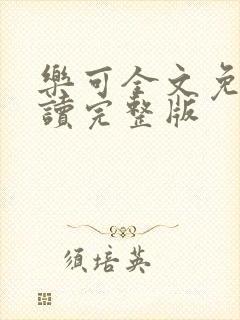 樂可全文免
讀完整版
須培英